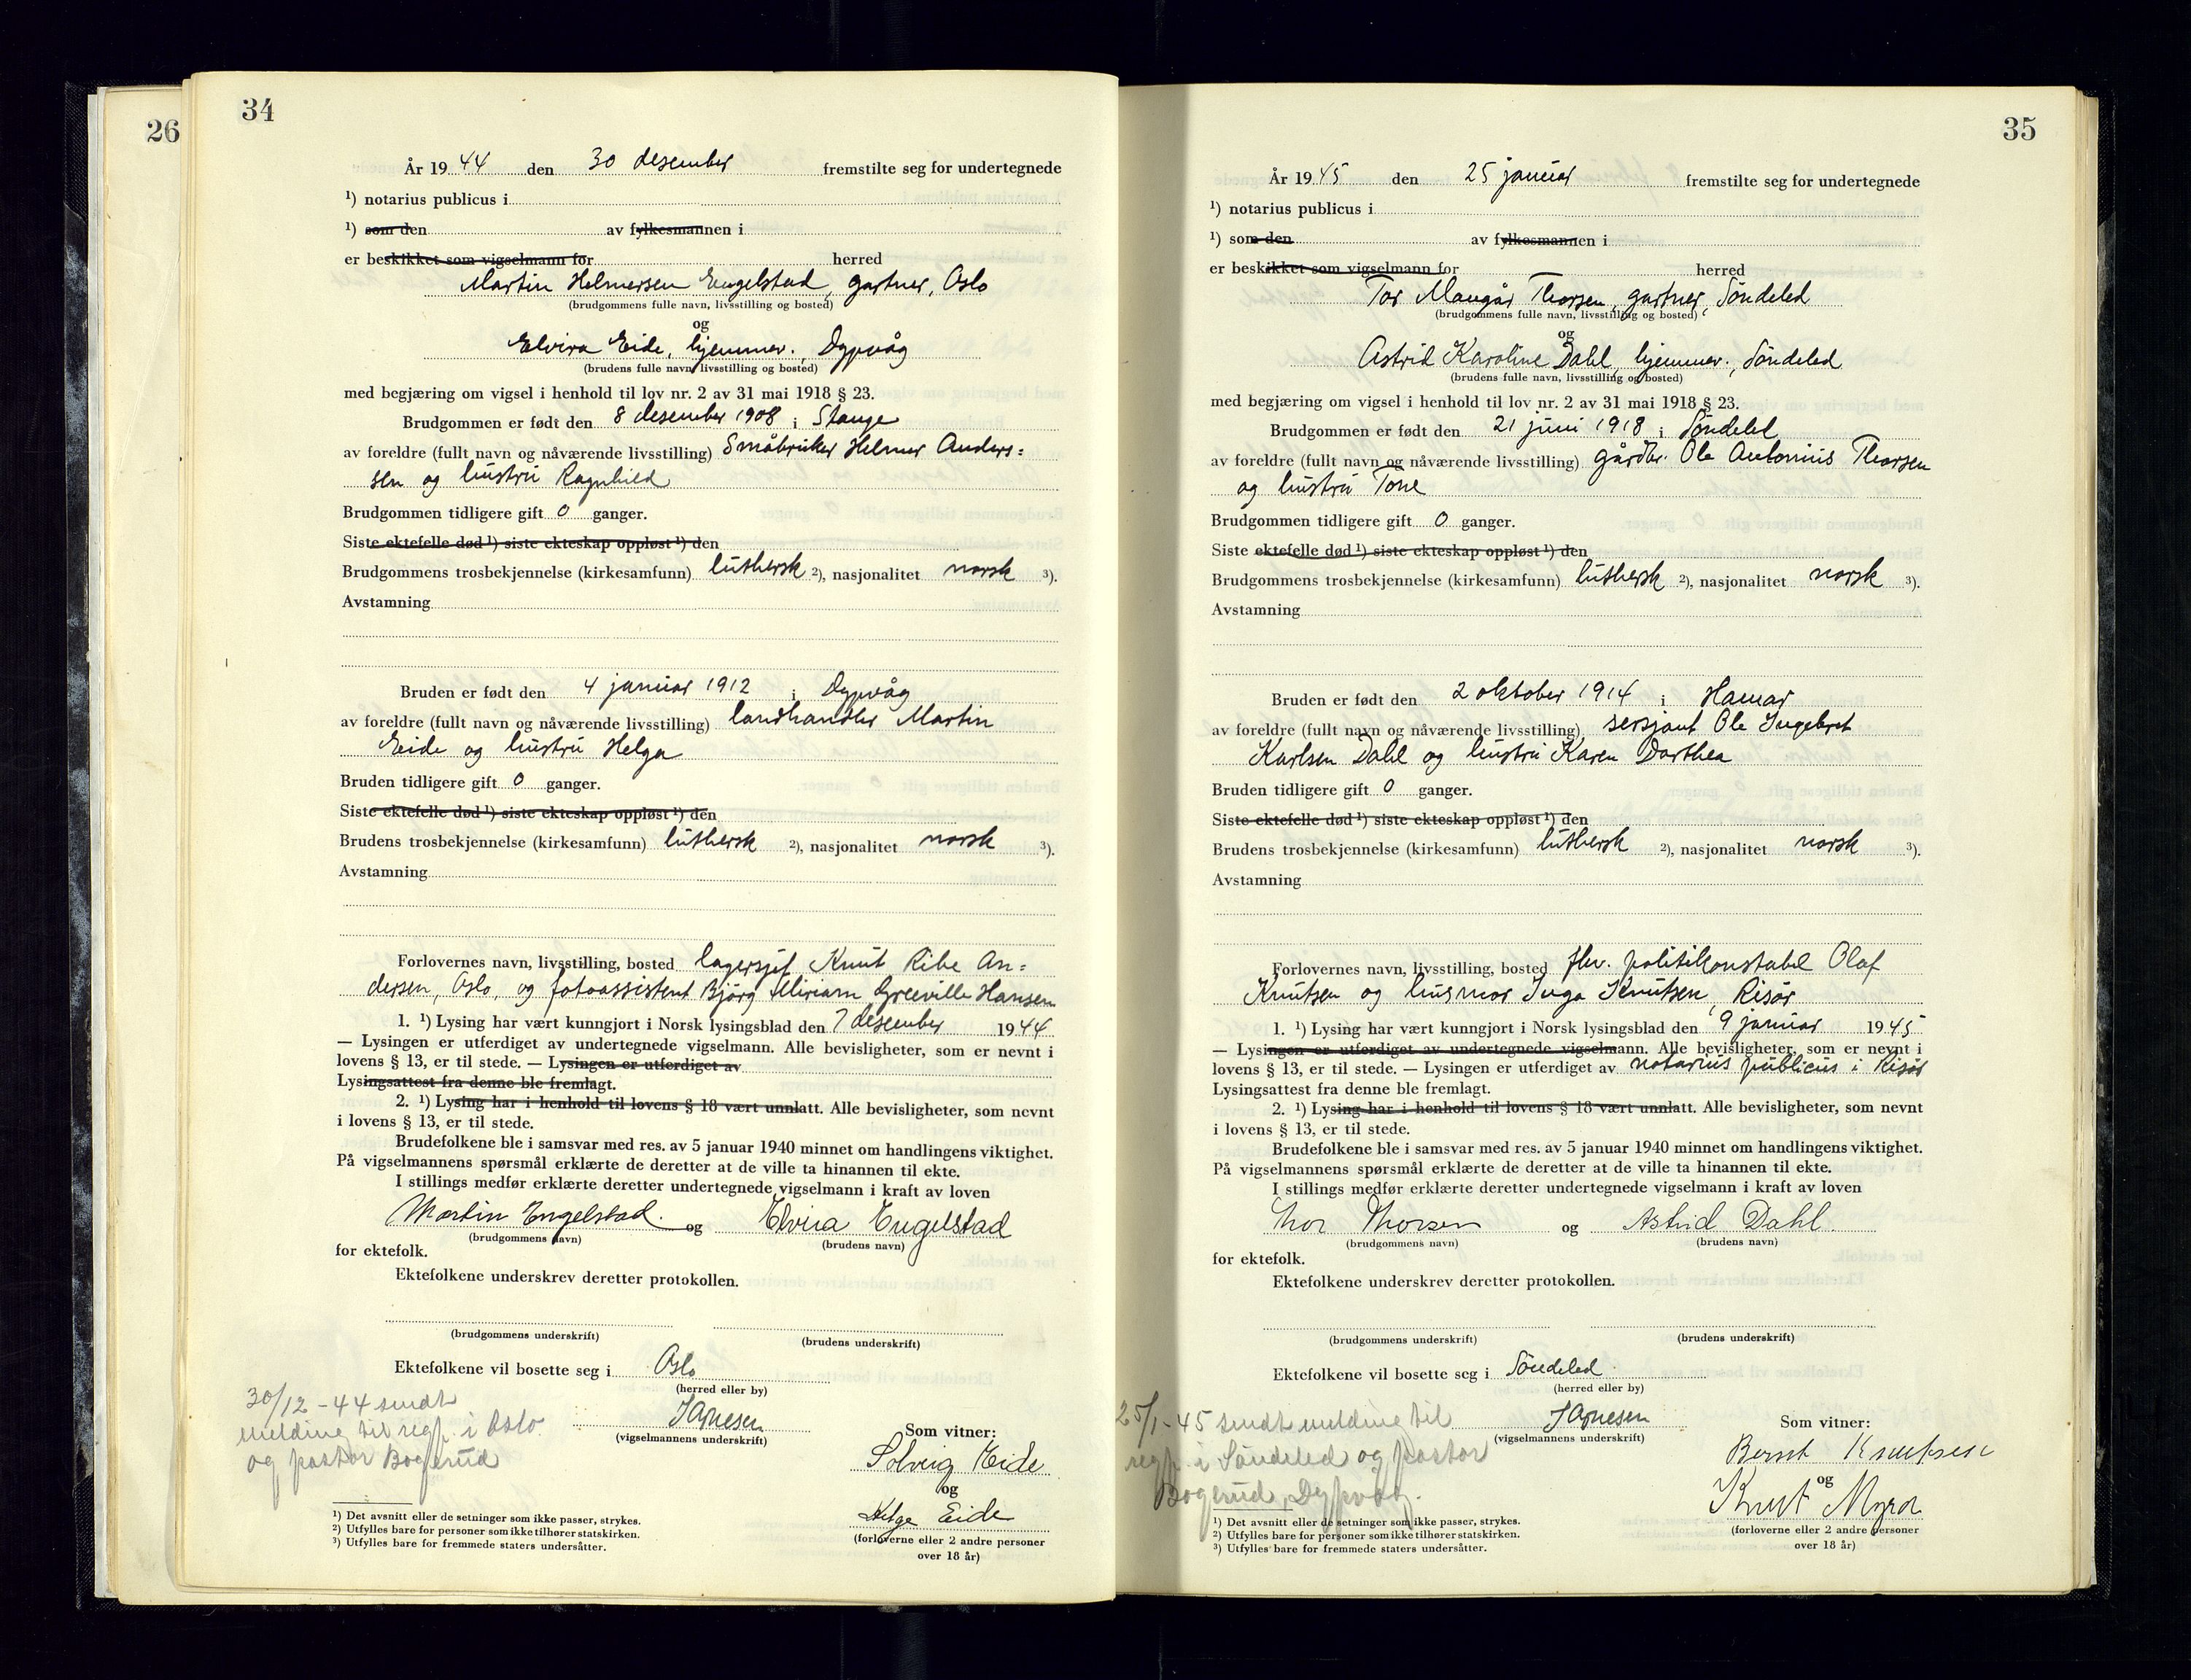 26
34
År 1944 den 30 desember fremstilte seg for undertegnede
¹) notarius publicus i
¹) som den av fylkesmannen i
er beskikket som vigselmann for herred
Martin Helmersen Engelstad, gartner, Oslo
(brudgommens fulle navn, livsstilling og bosted)
og
Elvira Eide, hjemmev., Dypvåg
(brudens fulle navn, livsstilling og bosted)
med begjæring om vigsel i henhold til lov nr. 2 av 31 mai 1918 § 23.
Brudgommen er født den 8 desember 1908 i Stange
av foreldre (fullt navn og nåværende livsstilling) Småbruker Helmer Anders=
sen og hustru Ragnhild
Brudgommen tidligere gift 0 ganger.
Siste ektefelle død ¹) siste ekteskap oppløst ¹) den
Brudgommens trosbekjennelse (kirkesamfunn) luthersk ²), nasjonalitet norsk ³).
Avstamning
Bruden er født den 4 januar 1912 i Dypvåg
av foreldre (fullt navn og nåværende livsstilling) landhandler Martin
Eide og hustru Helga
Bruden tidligere gift 0 ganger.
Siste ektefelle død ¹) siste ekteskap oppløst ¹) den
Brudens trosbekjennelse (kirkesamfunn) luthersk ²), nasjonalitet norsk ³).
Avstamning
Forlovernes navn, livsstilling, bosted lagersjef Knut Ribe An=
dersen, Oslo, og fotoassistent Bjørg Miriam Greeville Hansen
1. ¹) Lysing har vært kunngjort i Norsk lysingsblad den 7 desember 1944
— Lysingen er utferdiget av undertegnede vigselmann. Alle bevisligheter, som er nevnt i
lovens § 13, er til stede. — Lysingen er utferdiget av
Lysingsattest fra denne ble fremlagt.
2. ¹) Lysing har i henhold til lovens § 18 vært unnlatt. Alle bevisligheter, som nevnt
i lovens § 13, er til stede.
Brudefolkene ble i samsvar med res. av 5 januar 1940 minnet om handlingens viktighet.
På vigselmannens spørsmål erklærte de deretter at de ville ta hinannen til ekte.
I stillings medfør erklærte deretter undertegnede vigselmann i kraft av loven
Martin Engelstad og Elvira Engelstad
(brudgommens navn) (brudens navn)
for ektefolk.
Ektefolkene underskrev deretter protokollen.
(brudgommens underskrift) (brudens underskrift)
Ektefolkene vil bosette seg i Oslo
(herred eller by)
30/12-44 sendt
melding til regf. i Oslo
og pastor Bogerud
J Agnesen
(vigselmannens underskrift)
Som vitner:
Solveig Eide
og
Helge Eide
(forloverne eller 2 andre personer
over 18 år)
¹) Det avsnitt eller de setninger som ikke passer, strykes.
²) Utfylles bare for personer som ikke tilhører statskirken.
³) Utfylles bare for fremmede staters undersåtter.
35
År 1945 den 25 januar fremstilte seg for undertegnede
¹) notarius publicus i
¹) som den av fylkesmannen i
er beskikket som vigselmann for herred
Tor Maugår Thorsen, gartner, Søndeled
(brudgommens fulle navn, livsstilling og bosted)
og
Astrid Karoline Dahl, hjemmev., Søndeled
(brudens fulle navn, livsstilling og bosted)
med begjæring om vigsel i henhold til lov nr. 2 av 31 mai 1918 § 23.
Brudgommen er født den 21 juni 1918 i Søndeled
av foreldre (fullt navn og nåværende livsstilling) gårdbr. Ole Antonius Thorsen
og hustru Tone
Brudgommen tidligere gift 0 ganger.
Siste ektefelle død ¹) siste ekteskap oppløst ¹) den
Brudgommens trosbekjennelse (kirkesamfunn) luthersk ²), nasjonalitet norsk ³).
Avstamning
Bruden er født den 2 oktober 1914 i Hamar
av foreldre (fullt navn og nåværende livsstilling) sersjant Ole Ingebret
Karlsen Dahl og hustru Karen Dorthea
Bruden tidligere gift 0 ganger.
Siste ektefelle død ¹) siste ekteskap oppløst ¹) den
Brudens trosbekjennelse (kirkesamfunn) luthersk ²), nasjonalitet norsk ³).
Avstamning
Forlovernes navn, livsstilling, bosted fhv. politikonstabel Olaf
Knutsen og husmor Inga Knutsen, Risør
1. ¹) Lysing har vært kunngjort i Norsk lysingsblad den 9 januar 1945
— Lysingen er utferdiget av undertegnede vigselmann. Alle bevisligheter, som er nevnt i
lovens § 13, er til stede. — Lysingen er utferdiget av notarius publicus i Risør
Lysingsattest fra denne ble fremlagt.
2. ¹) Lysing har i henhold til lovens § 18 vært unnlatt. Alle bevisligheter, som nevnt
i lovens § 13, er til stede.
Brudefolkene ble i samsvar med res. av 5 januar 1940 minnet om handlingens viktighet.
På vigselmannens spørsmål erklærte de deretter at de ville ta hinannen til ekte.
I stillings medfør erklærte deretter undertegnede vigselmann i kraft av loven
Thor Thorsen og Astrid Dahl
(brudgommens navn) (brudens navn)
for ektefolk.
Ektefolkene underskrev deretter protokollen.
(brudgommens underskrift) (brudens underskrift)
Ektefolkene vil bosette seg i Søndeled
(herred eller by)
25/1-45 sendt melding til
regf. i Søndeled og pastor
Bogerud, Dypvåg.
J Agnesen
(vigselmannens underskrift)
Som vitner:
Bernt Knutsen
og
Knut Myra
(forloverne eller 2 andre personer
over 18 år)
¹) Det avsnitt eller de setninger som ikke passer, strykes.
²) Utfylles bare for personer som ikke tilhører statskirken.
³) Utfylles bare for fremmede staters undersåtter.